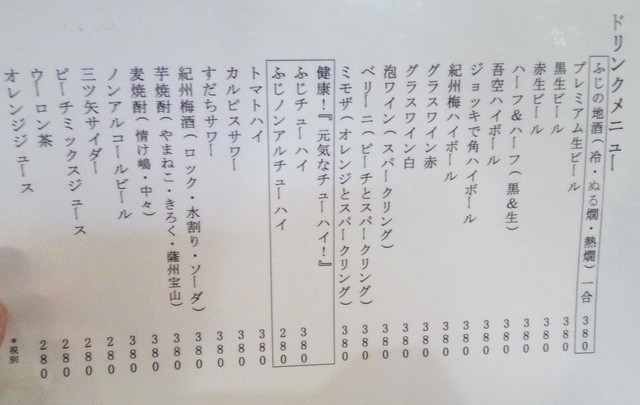 ドリンクメニュー
ふじの地酒(冷・ぬる燗・熱燗)一合 380
プレミアム生ビール 380
黒生ビール 380
赤生ビール 380
ハーフ&ハーフ(黒&生) 380
吾空ハイボール 380
ジョッキで角ハイボール 380
紀州梅ハイボール 380
グラスワイン赤 380
グラスワイン白 380
泡ワイン(スパークリング) 380
ベリーニ(ピーチとスパークリング) 380
ミモザ(オレンジとスパークリング) 380
健康!『元気なチューハイ!』
ふじチューハイ 380
ふじノンアルチューハイ 280
トマトハイ 380
カルピスサワー 380
すだちサワー 380
紀州梅酒(ロック・水割り・ソーダ) 380
芋焼酎(やまねこ・きろく・薩州宝山) 380
麦焼酎(情け嶋・中々) 380
ノンアルコールビール 280
三ツ矢サイダー 280
ピーチミックスジュース 280
ウーロン茶 280
オレンジジュース
*税別